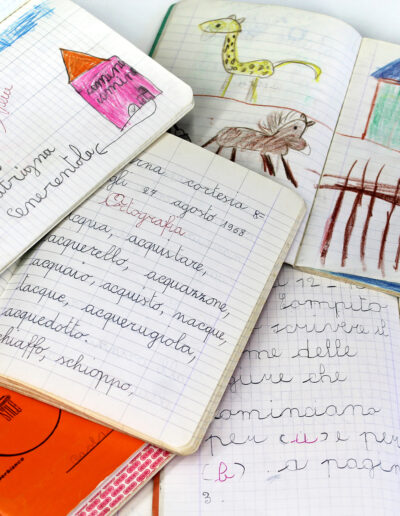 matrigna
Cenerentola
cortesia 8-
27 agosto 1968
Ortografia
acqua, acquistare,
acquerello, acquazzone,
acquaio, acquisto, nacque,
lacque, acquerugiola,
acquedotto.
schiaffo, schioppo,
12 -
Computo
scrivere il
nome delle
figure che
cominciano
per (u) e per
(b) a pagin
3.